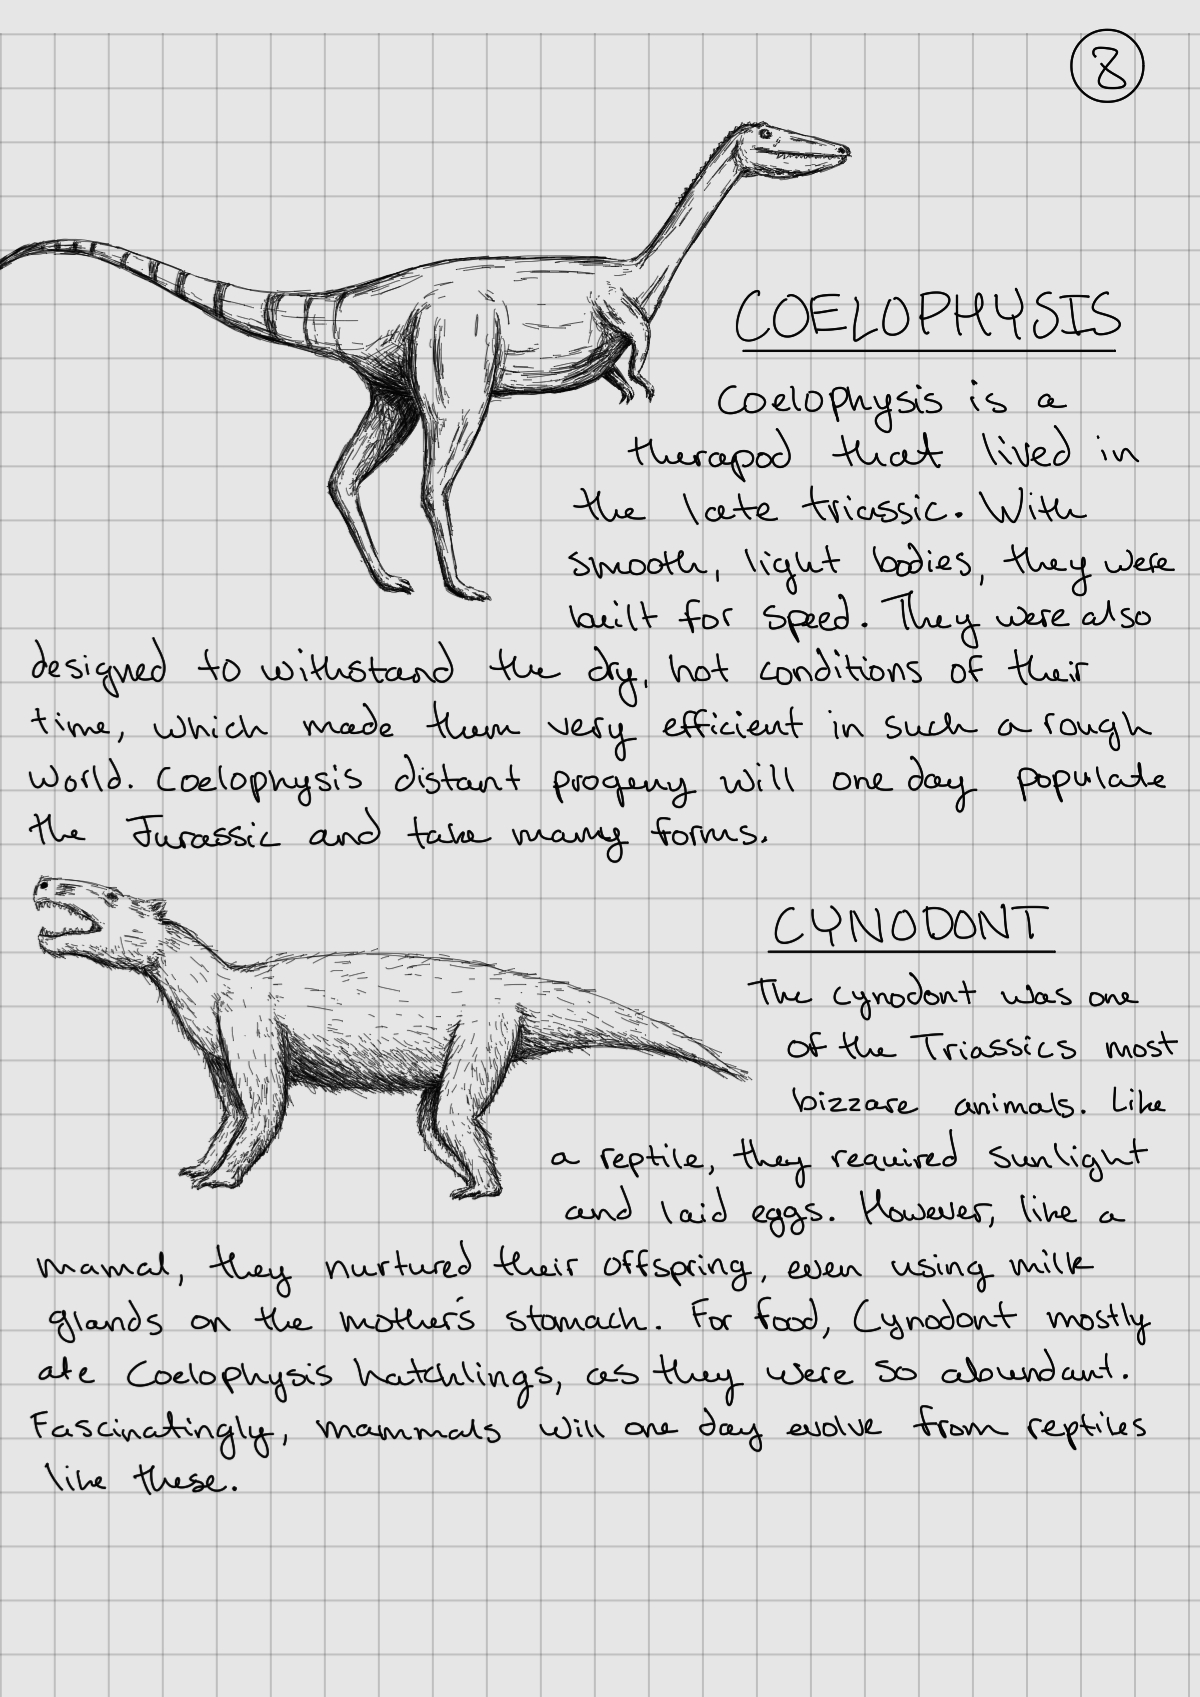 8
COELOPHYSIS
Coelophysis is a
therapod that lived in
the late triassic. With
smooth, light bodies, they were
built for speed. They were also
designed to withstand the dry, hot conditions of their
time, which made them very efficient in such a rough
world. Coelophysis distant progeny will one day populate
the Jurassic and take many forms.
CYNODONT
The cynodont was one
of the Triassics most
bizzare animals. Like
a reptile, they required sunlight
and laid eggs. However, like a
mamal, they nurtured their offspring, even using milk
glands on the mother's stomach. For food, Cynodont mostly
ate Coelophysis hatchlings, as they were so abundant.
Fascinatingly, mammals will one day evolve from reptiles
like these.